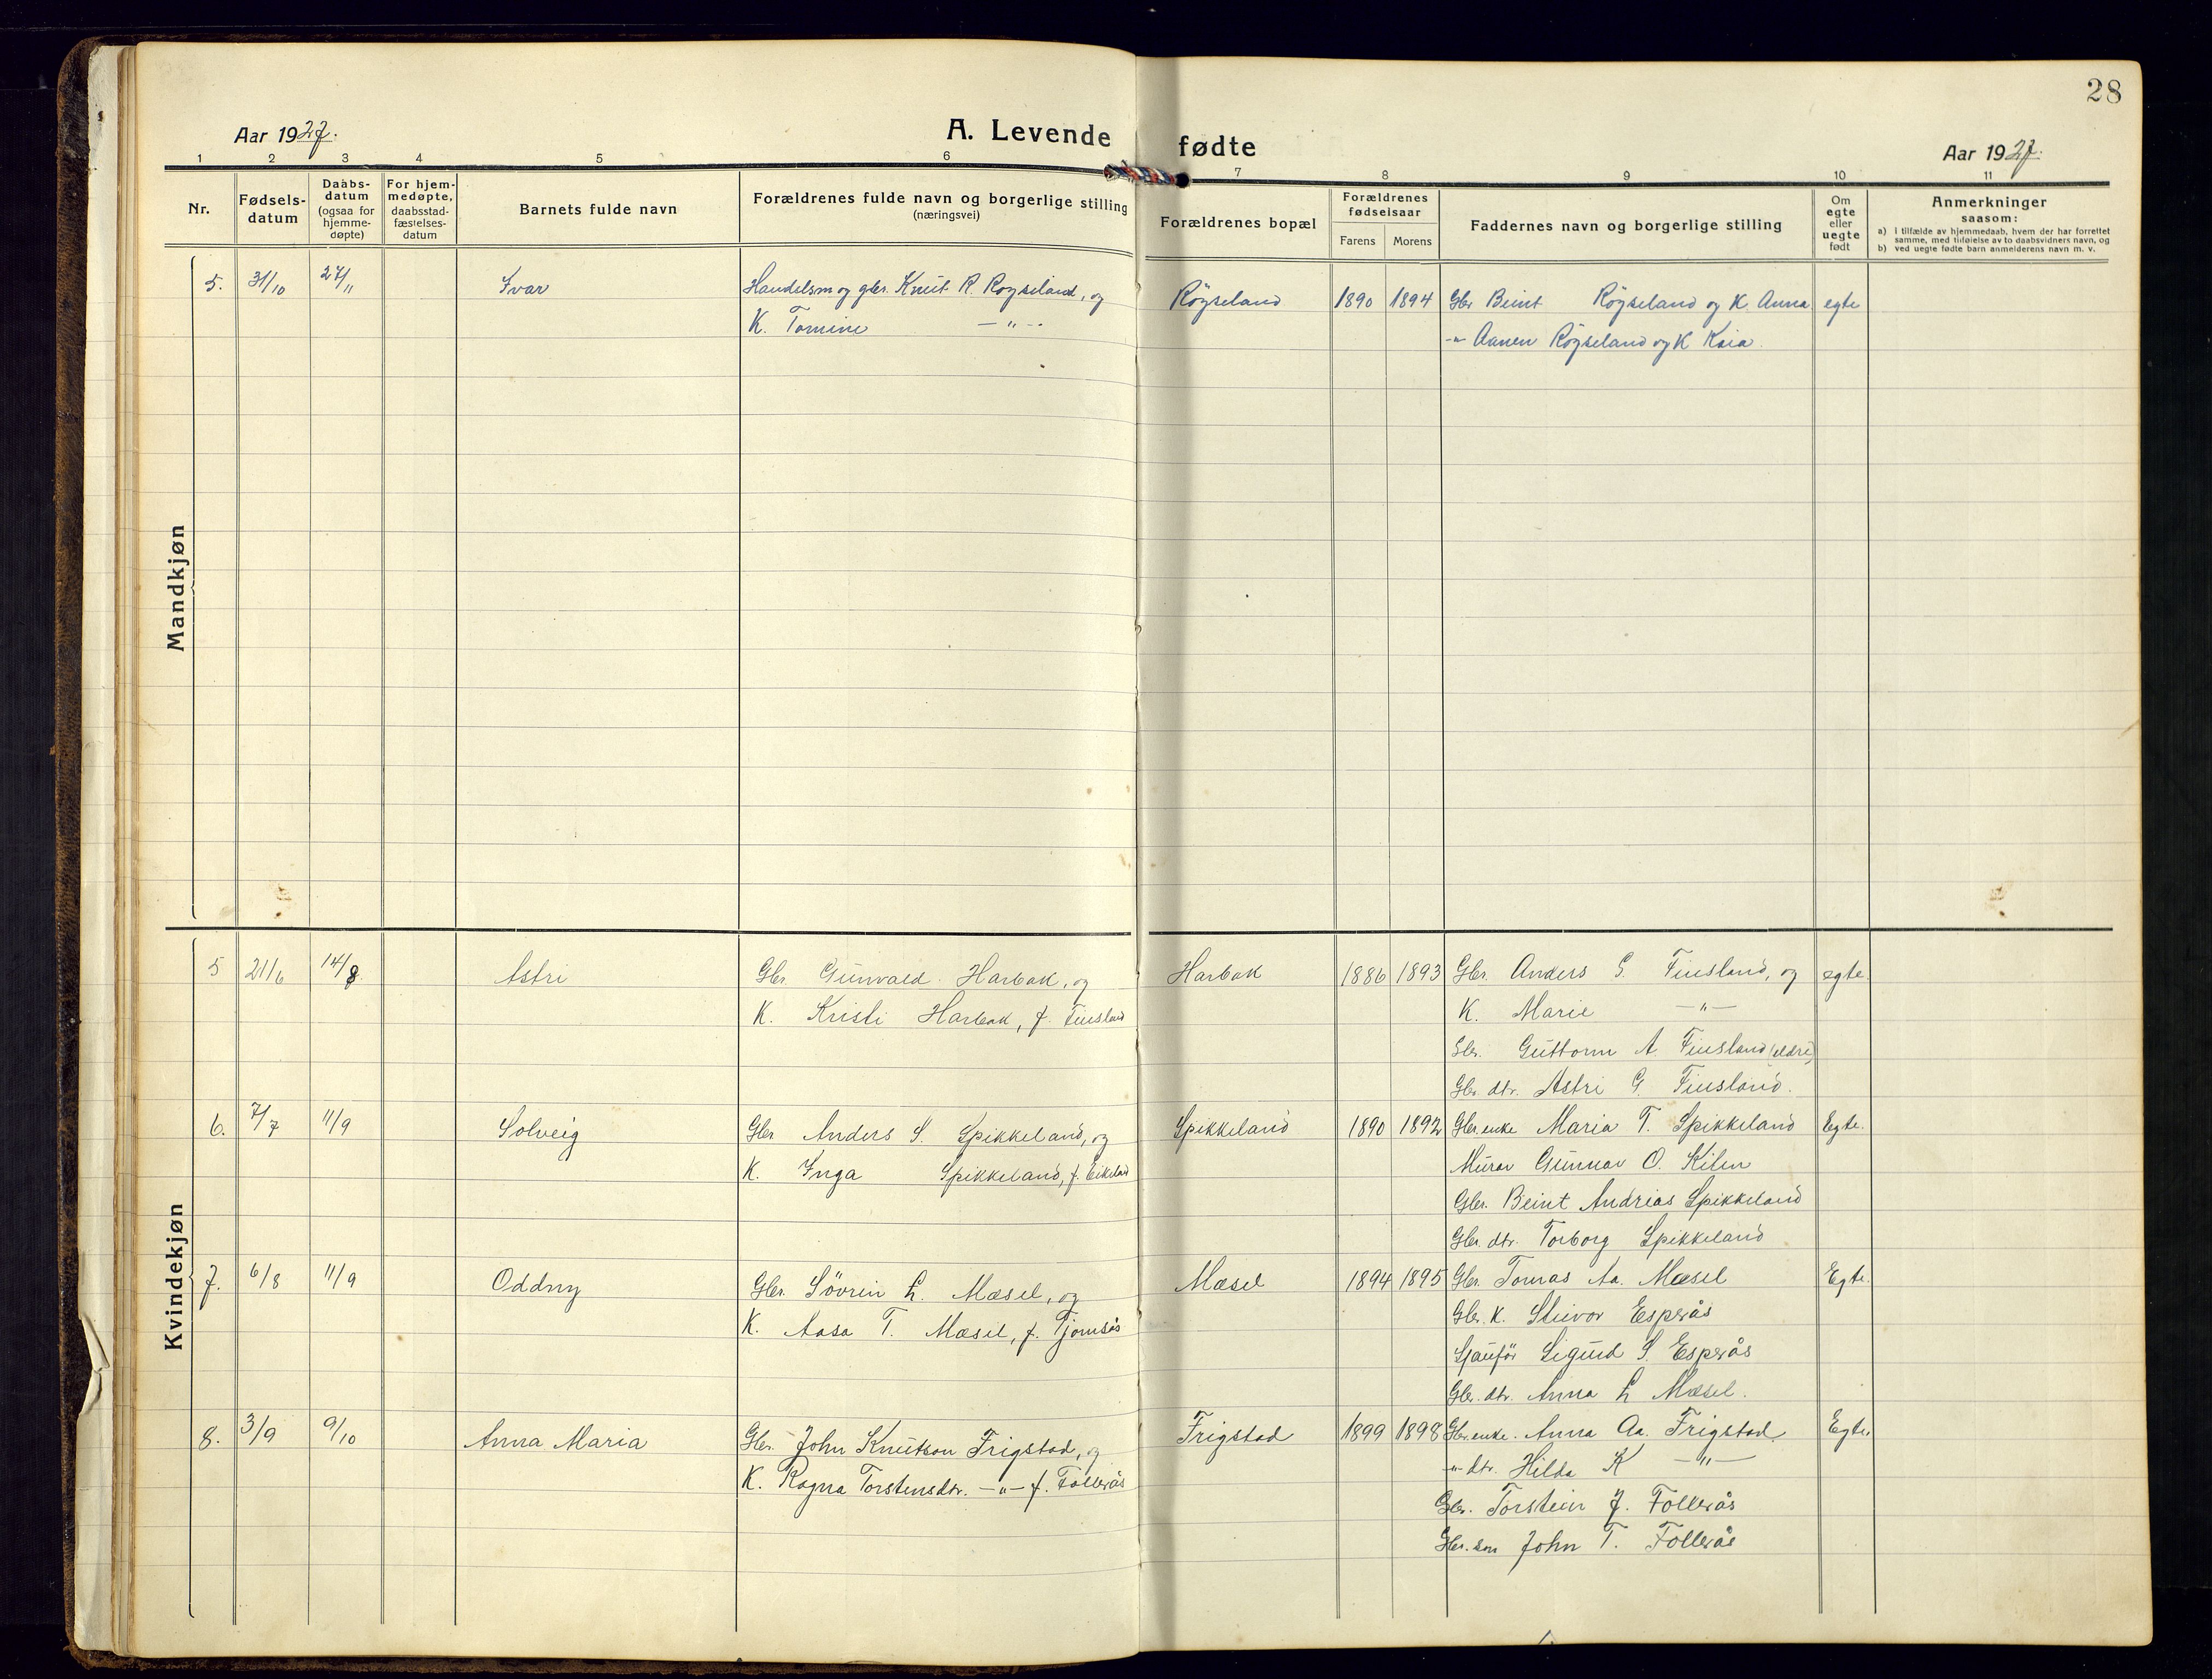 28
Aar 1927.
A. Levende fødte
Aar 1927.
1 2 3 4 5 6 7 8 9 10 11
Nr.
Fødsels-
datum
Daabs-
datum
(ogsaa for
hjemme-
døpte)
For hjem-
medøpte,
daabsstad-
fæstelses-
datum
Barnets fulde navn
Forældrenes fulde navn og borgerlige stilling
(næringsvei)
Forældrenes bopæl
Forældrenes
fødselsaar
Farens Morens
Faddernes navn og borgerlige stilling
Om
egte
eller
uegte
født
Anmerkninger
saasom:
a) I tilfælde av hjemmedaab, hvem der har forrettet
samme, med tilføielse av to daabsvidners navn, og
b) ved uegte fødte barn anmelderens navn m. v.
Mandkjøn
5. 31/10 27/11 Ivar Handelsm og gbr. Knut R. Røyseland, og Röyseland 1890 1894 Gbr Beint Röyseland og K. Anna. egte
K. Tomine —"— -"- Aanen Röyseland og K Kaia.
Kvindekjøn
5 21/6 14/8 Astri Gbr. Gunvald Harbak, og Harbak 1886 1893 Gbr. Anders G. Finsland, og egte.
K. Kristi Harbak, f. Finsland K. Marie —"—
Gbr. Guttorm A. Finsland (eldre)
Gbr. dtr. Astri G. Finsland.
6. 7/7 11/9 Solveig Gbr Anders S. Spikkeland, og Spikkeland 1890 1892 Gbr enke Maria T. Spikkeland Egte.
K. Inga Spikkeland, f. Eikeland Murar Gunnar O. Kilen
Gbr. Beint Andrias Spikkeland
Gbr. dtr. Torborg Spikkeland
7. 6/8 11/9 Oddny Gbr. Sövrin L. Mæsel, og Mæsel 1894 1895 Gbr. Tomas Aa. Mæsel Egte.
K. Aasa T. Mæsel, f. Tjomsås Gbr. K. Steivor Esperås
Sjauför Sigurd S. Esperås
Gbr. dtr. Anna L Mæsel.
8. 3/9 9/10 Anna Maria Gbr. John Knutson Frigstad, og Frigstad 1899 1898 Gbr. enke. Anna Aa. Frigstad Egte.
K. Ragna Torstensdtr. —"— f. Follerås -"- dtr. Hilda K —"—
Gbr. Torstein J. Follerås
Gbr. søn John T. Follerås